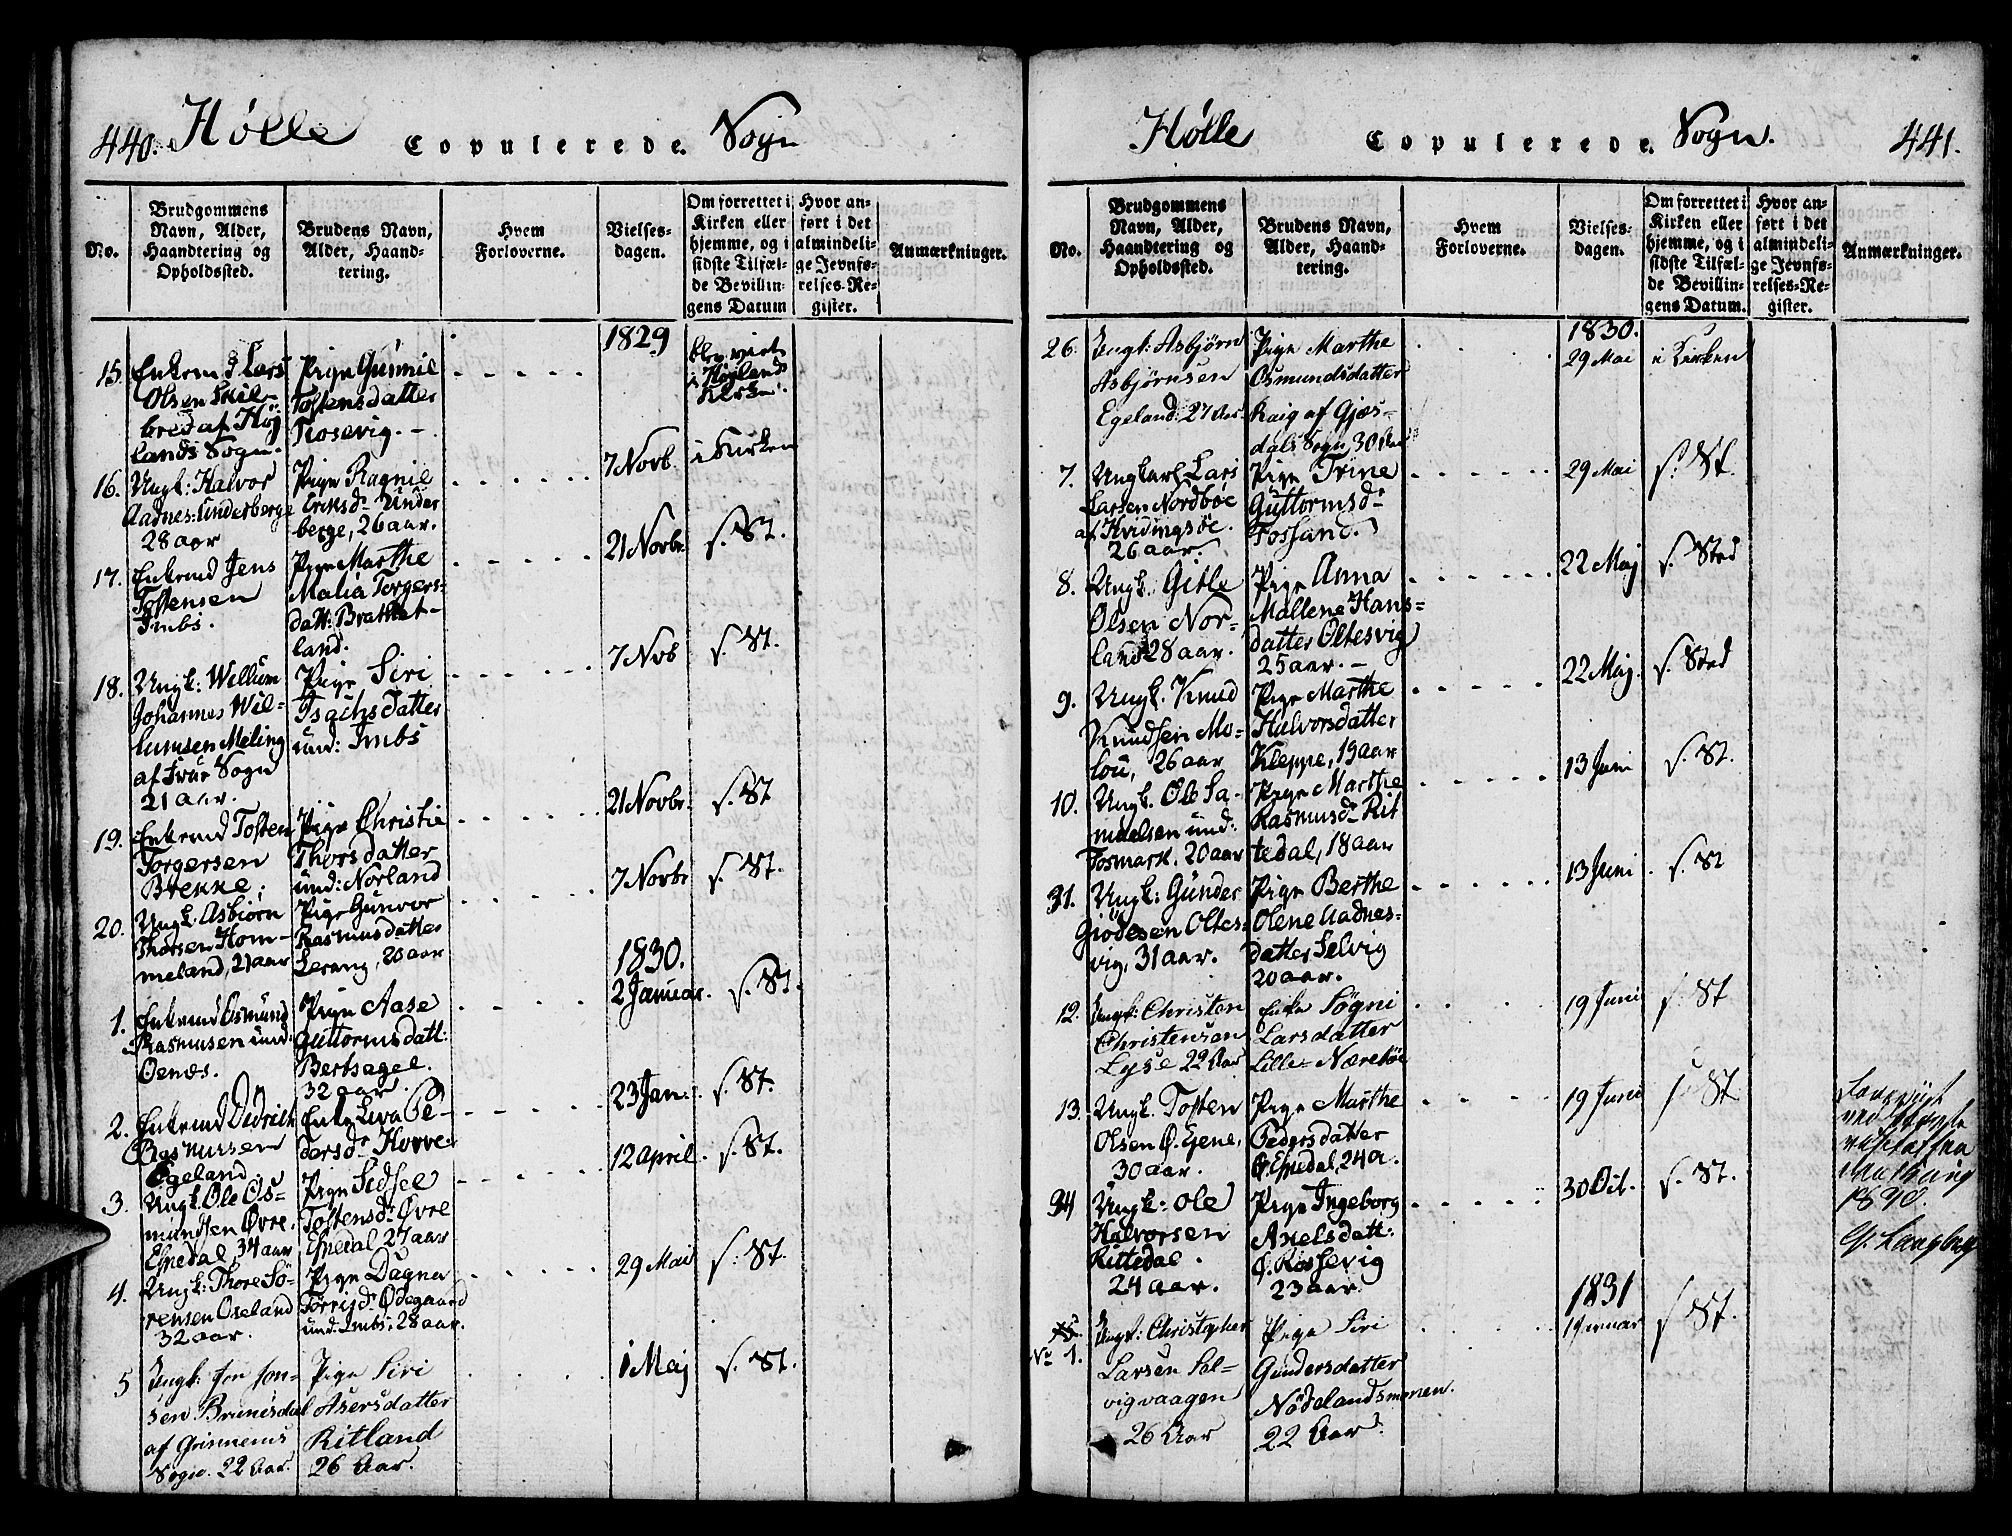 440. Hølle Copulerede. Sogn
No.
Brudgommens
Navn, Alder,
Haandtering og
Opholdssted.
Brudens Navn,
Alder, Haand-
tering.
Hvem
Forloverne.
Vielses-
dagen.
Om forrettet i
Kirken eller
hjemme, og i
sidste Tilfæl-
de Bevillin-
gens Datum
Hvor an-
ført i det
almindeli-
ge Jevnfø-
relses-Re-
gister.
Anmærkninger.
1829
15. Enkemd Lars
Olsen Skil-
bred af Høj-
lands Sogn.
Pige Gunnil
Tostensdatter
Kosevig. -
blev viet
i Høyland
Kirke.
16. Ungk: Halvor
Aadnes: Underberge
28 aar
Pige Ragnil
Eriksdr Under
berge, 26 aar.
7 Novb. i Kirken
17. Enkemd Jens
Tostensen
Imbs.
Pige Marthe
Malia Torgers-
datt: Brattet-
land.
21 Novbr. s. St.
18. Ungk: Wellum
Johannes Wil-
lumsen Meling
af Sogn
21 aar.
Pige Siri
Isachsdatter
und: Imbs
7 Nvb s. St.
19. Enkemd Tosten
Torgersen
Brekke.
Pige Christie
Thorsdatter
und: Norland
21 Novbr. s. St
20. Ungk. Asbiørn
Thorsen Hom-
meland, 21 aar
Pige Gunvor
Rasmusdatter
Lerang, 20 aar
7 Novbr s. St.
1830.
1. Enkemd Osmund
Rasmusen und:
Oenæs.
Pige Aase
Guttormsdatt:
Bertsagel.
32 aar.
2 Januar. s. St.
2. Enkemd Didrich
Rasmussen
Egeland
Enke Liva Pe-
dersdr Horve.
23 Jan: s. St.
3. Ungk. Ole Os-
mundsen Øvre.
Espedal, 34 aar
Pige Sidsele
Tostensdr Øvre
Espedal 27 aar
12 April. s. St.
4. Ungk: Thore Sö-
rensen Oseland
32 aar.
Pige Dagna
Törrisdr Ødegaard
und: Imbs, 28 aar.
29 Mai s. St.
5 Ungk: Jon Jon-
sen Brunesdal
af
Sogn. 22 Aar.
Pige Siri
Asersdatter
Ritland
26 Aar.
1 Maj s. St.
Hölle Copulerede. Sogn. 441.
No.
Brudgommens
Navn, Alder,
Haandtering og
Opholdssted.
Brudens Navn,
Alder, Haand-
tering.
Hvem
Forloverne.
Vielses-
dagen.
Om forrettet i
Kirken eller
hjemme, og i
sidste Tilfæl-
de Bevillin-
gens Datum.
Hvor an-
ført i det
almindeli-
ge Jevnfø-
relses-Re-
gister.
Anmærkninger.
1830.
26. Ungk: Asbjørn
Asbjørnsen
Egeland: 27 Aar.
Pige Marthe
Osmundsdatter
Raig af Gjæs-
dals Sogn, 30 Aar
29 Mai i Kirken
7. Ungkarl Lars
Larsen Nordböe
af Hvidingsöe.
26 aar.
Pige Trine
Guttormsdr
Fossand.
29 Mai s. St.
8. Ungk. Gitle
Olsen Nor-
land 28 aar.
Pige Anna
Mallene Hans-
datter Oltesvig
25 aar. -
22 Maj s. Sted
9. Ungk. Knud
Knudsen Mo-
lou, 26 aar
Pige Marthe
Halvorsdatter
Kleppe, 19 aar
22 Maj. s. Sted
10. Ungk. Ole Sa-
muelsen und:
Fosmark. 20 aar
Pige Marthe
Rasmusdr Rit
tedal, 18 aar
13 Juni s. St.
31. Ungk: Gunder
Giödesen Oltes-
vig, 31 aar.
Pige Berthe
Olene Aadnes-
datter Selvig
20 aar.
13 Juni s. St
12. Ungk: Christen
Christensen
Lyse 22 Aar
Enke Søgni
Larsdatter
Lille- Næreböe
19 Juni s. St
13. Ungk. Tosten
Olsen Ø.
30 aar.
Pige Marthe
Pedersdatter
Ø. Espedal, 24 a.
19 Juni s. St.
34 Ungk: Ole
Halvorsen
Rittedal.
24 aar.
Pige Ingeborg
Axelsdatt:
23 aar.
30 Oct. s. St.
1890.
1831
No 1. Ungk: Christopher
Larsen Sel-
vigvaagen
26 Aar
Pige Siri
Gundersdatter
Nödelandsmonen.
22 Aar.
1 Januar s. St.